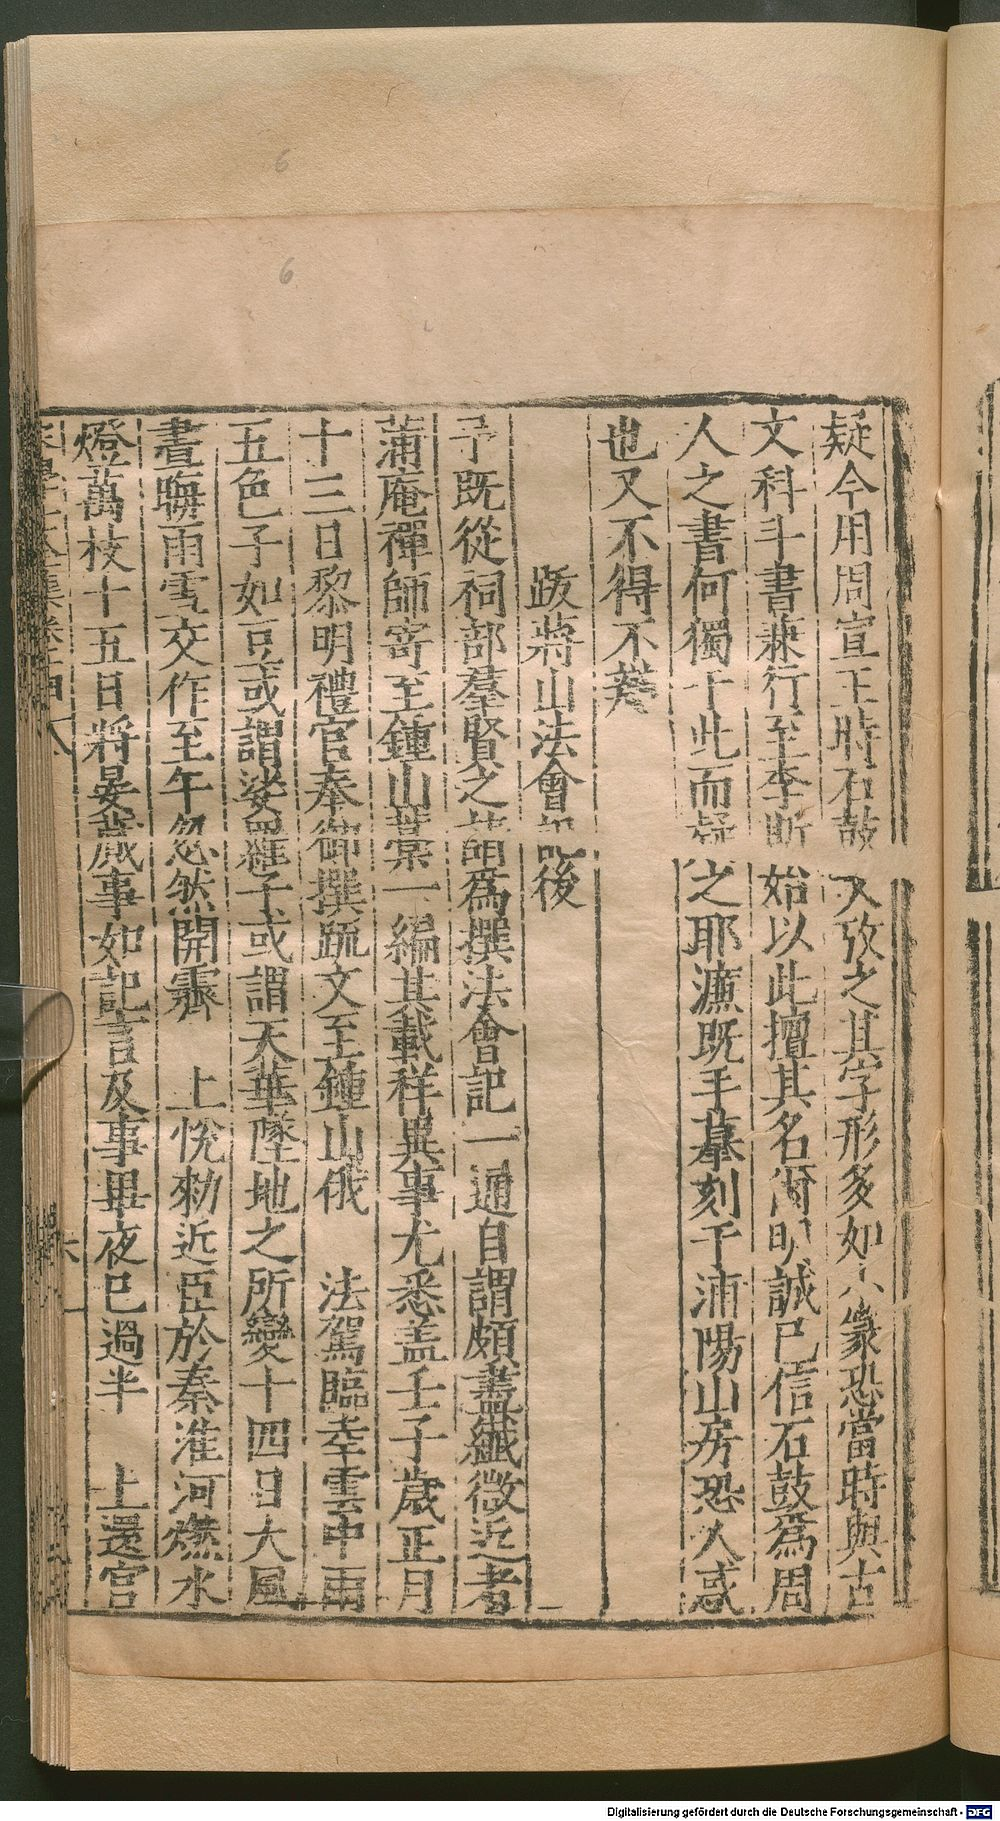 疑今用周宣王時石鼓文攷之其字形多如小篆恐當時與古
文科斗書蒹行至李斯始以此擅其名爾明誠已信石鼓為周
人之書何獨于此而疑之耶濂既手摹刻于浦陽山房恐人惑
也又不得不辯
跋蔣山法會記後
予既從祠部羣賢之請為撰法會記一通自謂頗盡纖微近者
蒲庵禪師寄至鍾山藁一編其載祥異事尤悉盖壬子歳正月
十三日黎明禮官奉御撰䟽文至鍾山俄 法駕臨幸雲中雨
五色子如豆或謂娑羅子或謂天華墜地之所變十四日大風
晝晦雨雪交作至午忽然開霽 上悅勑近臣於秦淮河燃水
燈萬枝十五日將晏蕆事如記言及事畢夜巳過半 上還宫
6
6
Digitalisierung gefördert durch die Deutsche Forschungsgemeinschaft - DFG